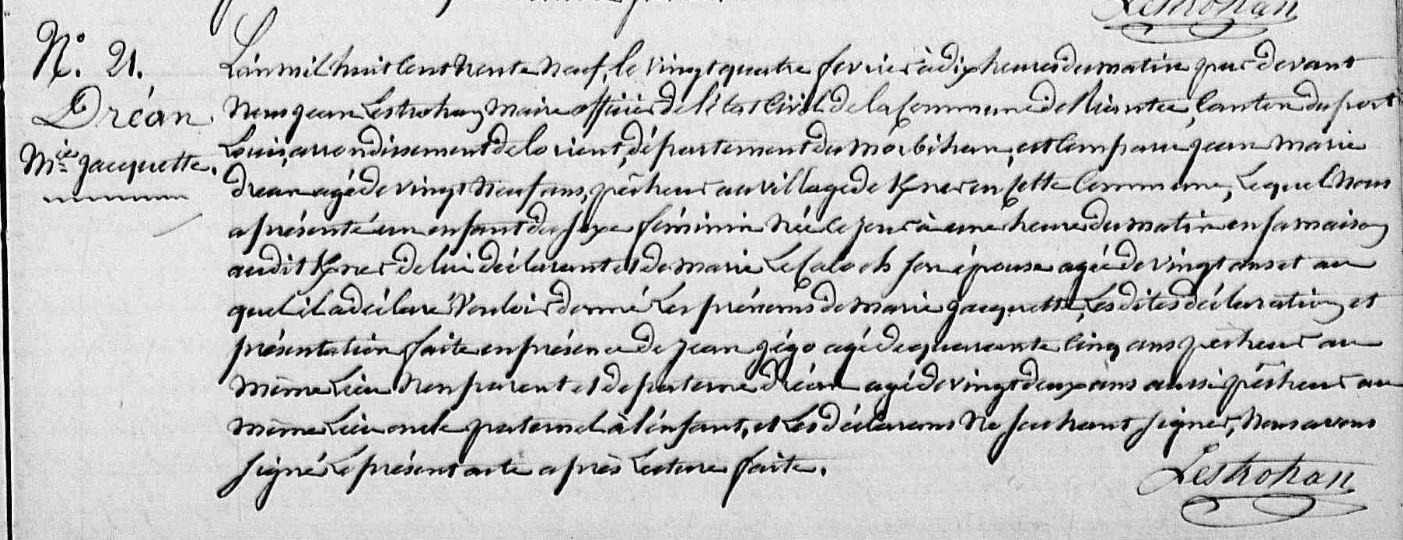 Lestrohan
N.° 21.
Dréan
M.ie Jacquette.
L'an mil huit Cent trente Neuf, le vingt quatre fevrier à dix heures du matin par devant
Nous jean Lestrohan Maire officier de l'état Civil de la Commune de Riantec, Canton du port
Louis, arrondissement de lorient, département du Morbihan, est Comparu jean Marie
dréan agé de vingt Neuf ans, pêcheur au village de Kner en sette Commune, Lequel Nous
a présenté un enfant du sexe féminin Née le jour à une heure du matin en sa maison
audit Kner de lui déclarant et de Marie Le Caloch son épouse agée de vingt ans et au
quel il a déclaré Vouloir donné Les prénoms de Marie Jacquette, Les dites déclaration et
présentation faite en présence de jean gégo agé de quarante Cinq ans pêcheur au
même Lieu Non parent et de paterne dréan agé de vingt deux ans aussi pêcheur au
même Lieu oncle paternel à l'enfant, et Les déclarans Ne sachant signer, Nous avons
signé Le présent acte après Lecture faite.
Lestrohan